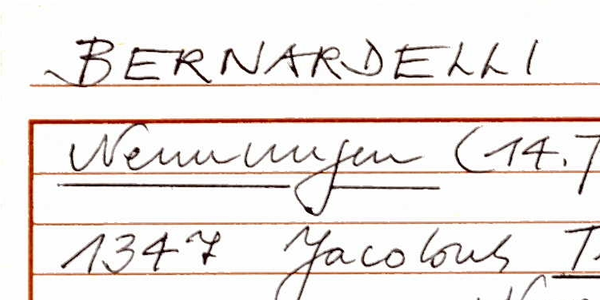 BERNARDELLI
Nennungen (14.
1347 Jacobus